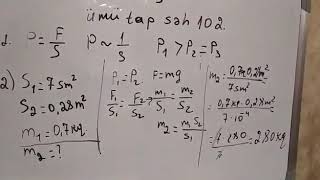 ümu tap səh 102.
1. P = F/S P ~ 1/S P₁ > P₂ = P₃
2) S₁ = 7sm²
S₂ = 0,28m²
m₁ = 0,7kq
m₂ = ?
P₁ = P₂ F = mg
F₁/S₁ = F₂/S₂ → m₁/S₁ = m₂/S₂
m₂ = m₁S₂/S₁
m₂ = 0,7kq·0,28m²/7sm² =
= 0,7kq·0,28m²/7·10⁻⁴ =
= 280kq